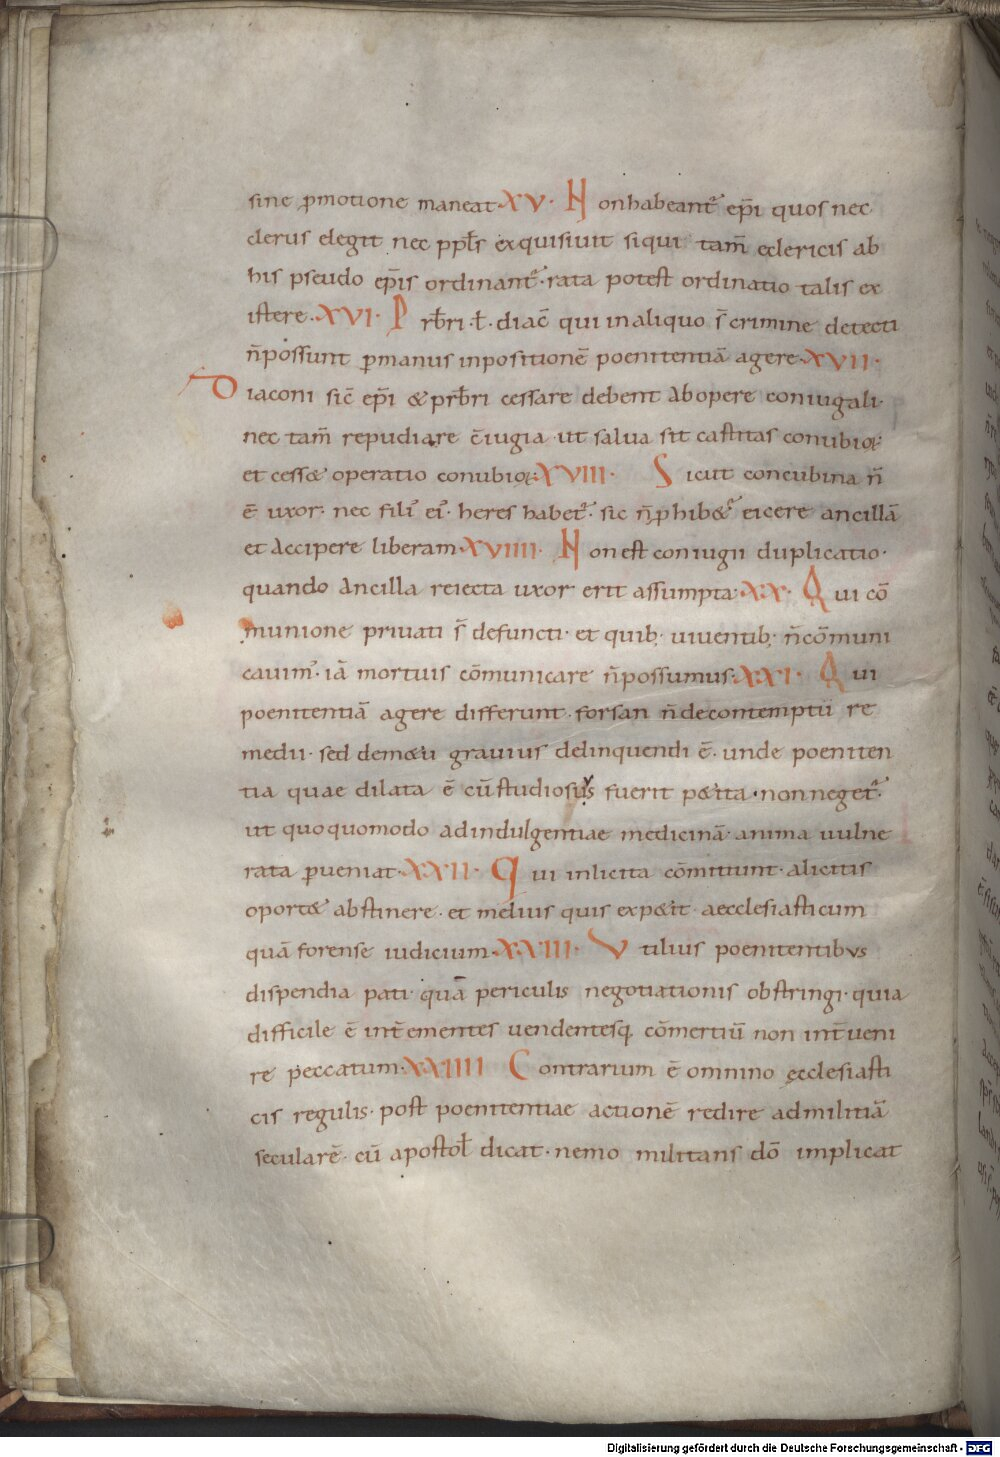 sine ꝓmotione maneat·XV· Non habeant᷑ ep̄i quos nec
clerus elegit nec ppl̄s exquisiuit siqui tam̄ eclericis ab
his pseudo ep̄is ordinant᷑·rata potest ordinatio talis ex
istere·XVI· Prb̄ri·ł·diac̄ qui in aliquo s̄ crimine detecti
n̄ possunt ꝑ manus inpositionē poenitentiā agere·XVII·
Diaconi sic̄ ep̄i & prb̄ri cessare debent ab opere coniugali·
nec tam̄ repudiare c̄iugia·ut salua sit castitas conubioꝝ
et cess& operatio conubioꝝ·XVIII· Sicut concubina n̄
ē uxor· nec filī eī· heres habet᷑· sic n̄ ꝓhib&᷑ eicere ancillā
et accipere liberam·XVIIII· Non est coniugii duplicatio·
quando ancilla reiecta uxor erit assumpta·XX· Qui cō
munione priuati s̄ defuncti· et quib; uiuentib; n̄ cōmuni
cauim᷒· iā mortuis cōmunicare n̄ possumus·XXI· Qui
poenitentiā agere differunt·forsan n̄ de contemptū re
medii· sed de m&u grauius delinquendi ē· unde poeniten
tia quae dilata ē cū studiosus fuerit p&ita·non neget᷑·
ut quoquomodo ad indulgentiae medicinā· anima uulne
rata ꝑueniat·XXII· Qui inlicita cōmittunt·alicitis
oport& abstinere· et melius quis exp&it· aecclesiasticum
quā forense iudicium·XXIII· Vtilius poenitentibus
dispendia pati· quā periculis negotiationis obstringi·quia
difficile ē int̄ ementes uendentesq; cōmertiū non int̄ueni
re peccatum·XXIIII Contrarium ē omnino ęcclesiasti
cis regulis· post poenitentiae actionē redire ad militiā
secularē· cū apostoł dicat·nemo militans dō implicat